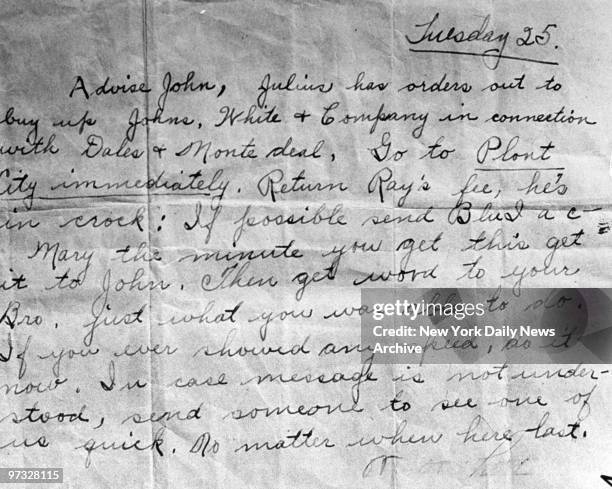 Tuesday 25.
Advise John, Julius has orders out to
buy up Johns, White & Company in connection
with Dales & Monte deal. Go to Plont
City immediately. Return Ray's fee, he's
in crock: If possible send BluI a c-
Mary the minute you get this get
it to John. Then get word to your
Bro. just what you want to do.
If you ever showed any speed, do it
now. In case message is not under-
stood, send someone to see one of
us quick. No matter when here last.
gettyimages
Credit: New York Daily News
Archive
97328115